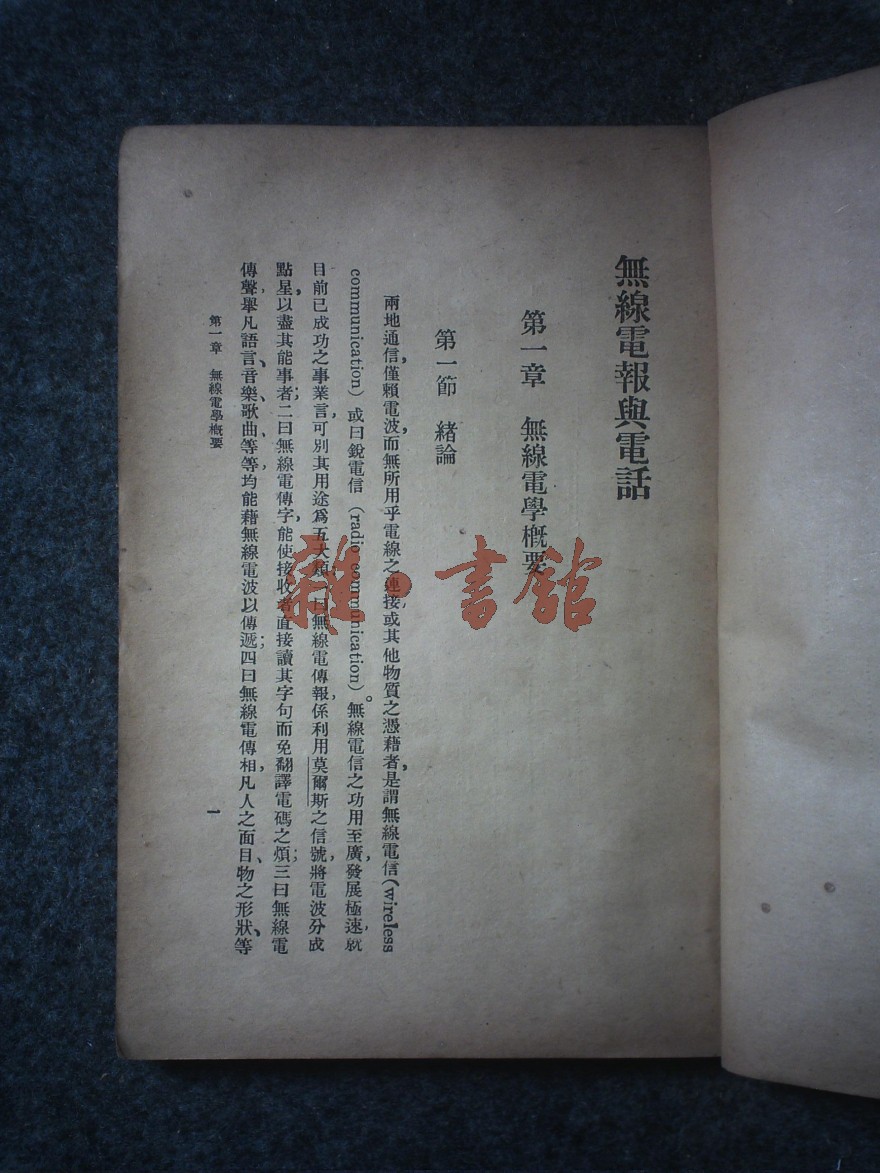 無線電報與電話
第一章　無線電學概要
第一節　緒論
兩地通信，僅賴電波，而無所用乎電線之連接或其他物質之憑藉者，是謂無線電信(wireless
communication) 或曰銳電信 (radio communication)。無線電信之功用至廣，發展極速，就
目前已成功之事業言，可別其用途爲五大類：一曰無線電傳報，係利用莫爾斯之信號，將電波分成
點星，以盡其能事者；二曰無線電傳字，能使接收者直接讀其字句而免翻譯電碼之煩；三曰無線電
傳聲，舉凡語言、音樂、歌曲、等等，均能藉無線電波以傳遞；四曰無線電傳相，凡人之面目、物之形狀、等
第一章　無線電學概要
1
雜·書館